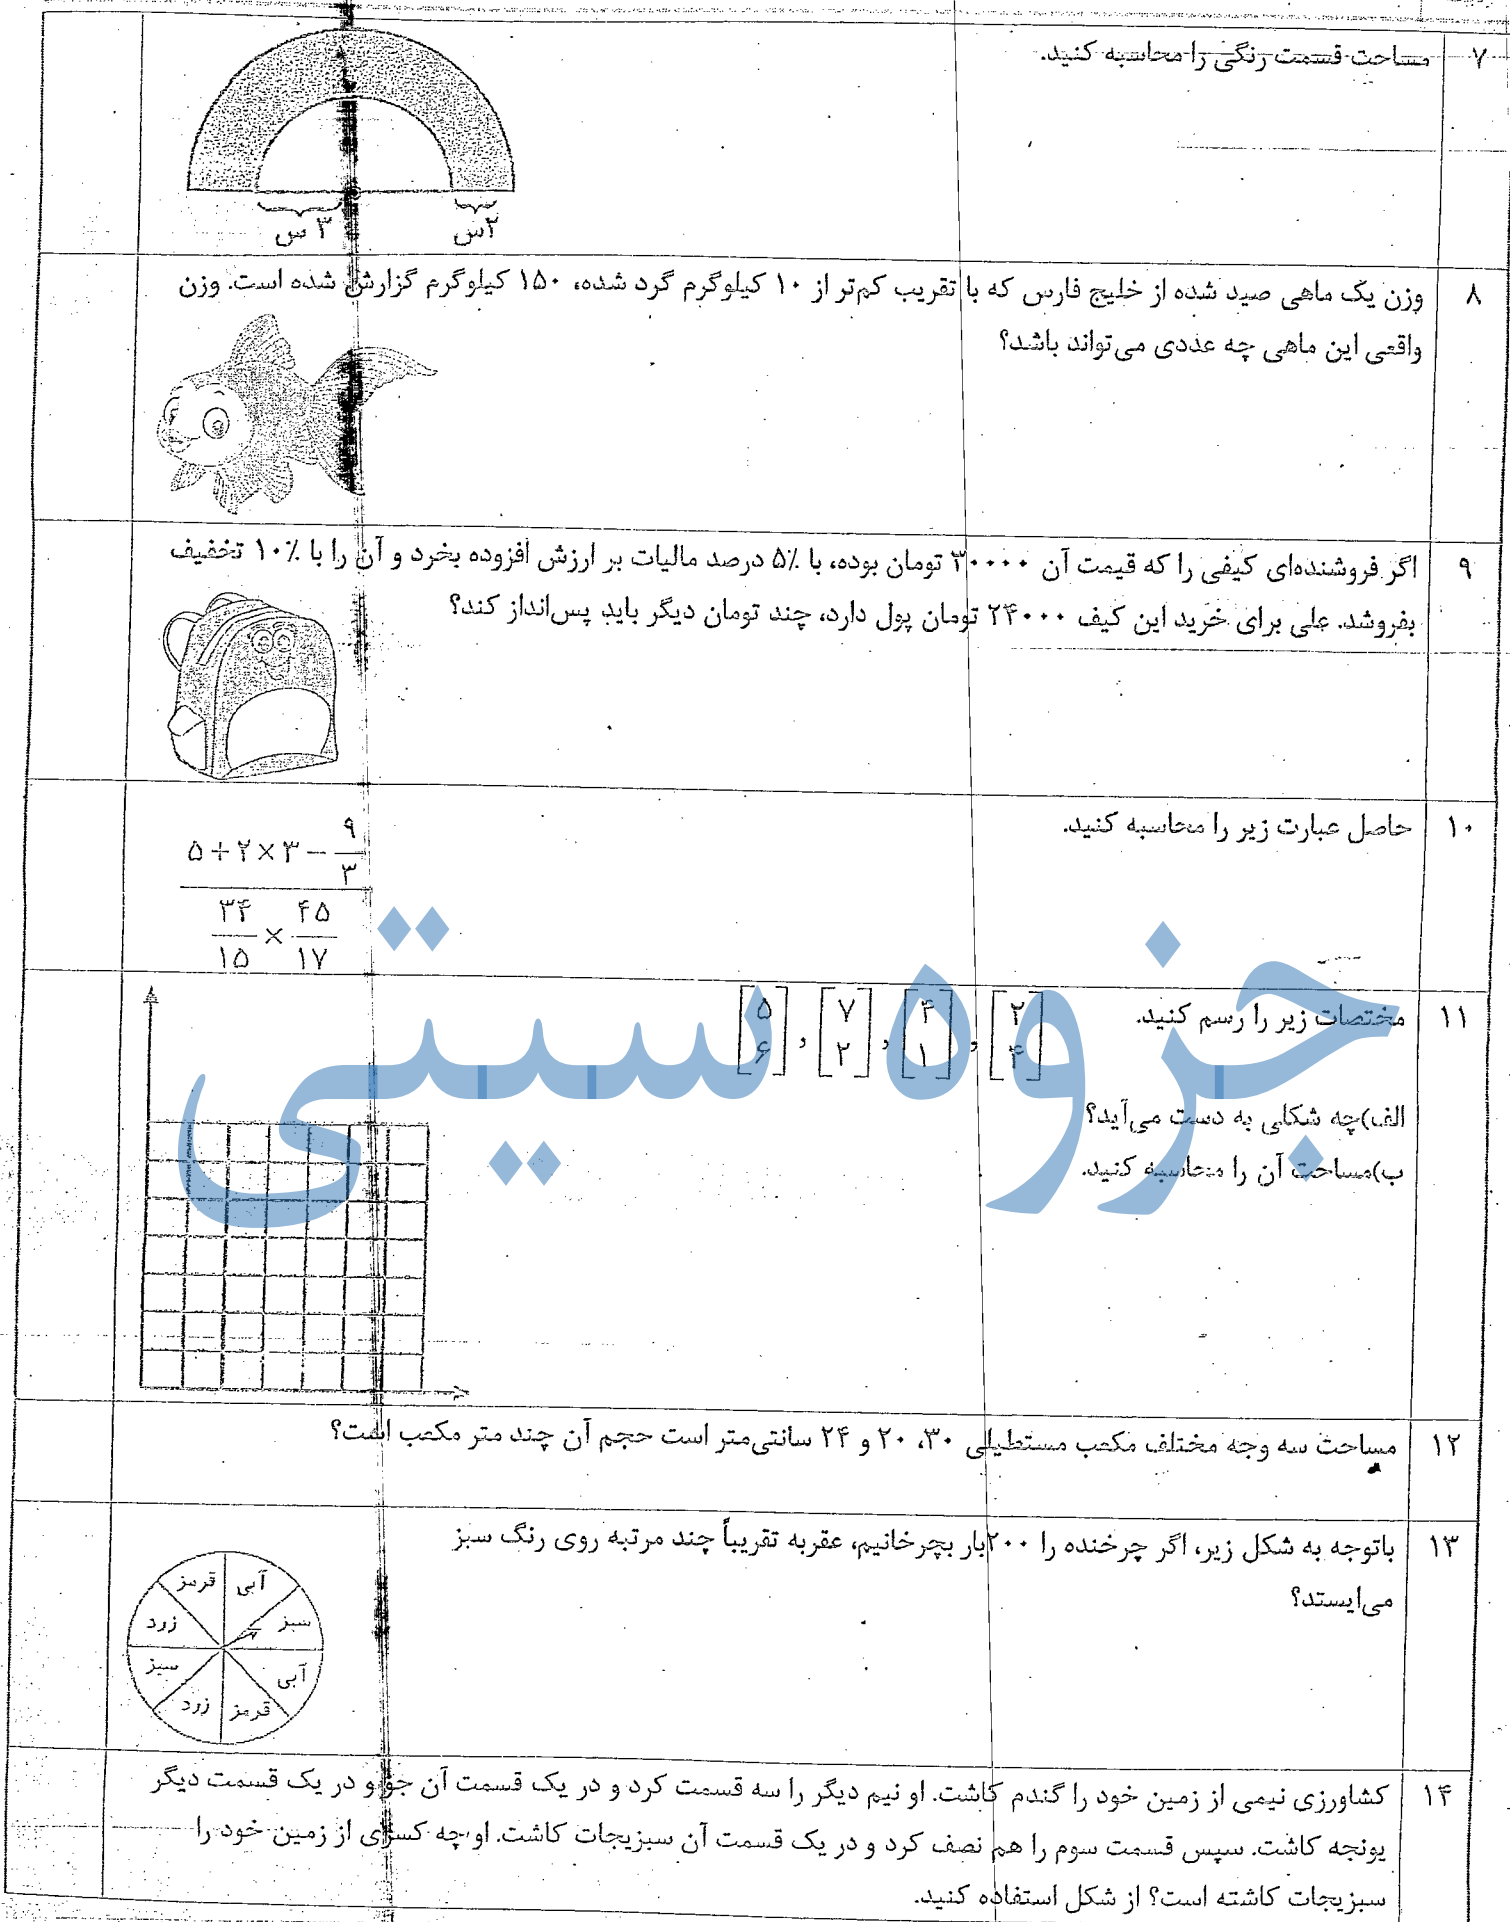 ۷
مساحت قسمت رنگی را محاسبه کنید.
۳ س
۲س
۸
وزن یک ماهی صید شده از خلیج فارس که با تقریب کم‌تر از ۱۰ کیلوگرم گرد شده، ۱۵۰ کیلوگرم گزارش شده است. وزن
واقعی این ماهی چه عددی می‌تواند باشد؟
۹
اگر فروشنده‌ای کیفی را که قیمت آن ۳۰۰۰۰ تومان بوده، با ۵٪ درصد مالیات بر ارزش افزوده بخرد و آن را با ۱۰٪ تخفیف
بفروشد. علی برای خرید این کیف ۲۴۰۰۰ تومان پول دارد، چند تومان دیگر باید پس‌انداز کند؟
۱۰
حاصل عبارت زیر را محاسبه کنید.
۹
۵+۲×۳−
۳
۳۴ ۴۵
×
۱۵ ۱۷
۱۱
مختصات زیر را رسم کنید. [۲ ۴] , [۴ ۱] , [۷ ۲] , [۵ ۶]
الف)چه شکلی به دست می‌آید؟
ب)مساحت آن را محاسبه کنید.
جزوه سیتی
۱۲
مساحت سه وجه مختلف مکعب مستطیلی ۳۰، ۲۰ و ۲۴ سانتی‌متر است حجم آن چند متر مکعب است؟
۱۳
باتوجه به شکل زیر، اگر چرخنده را ۲۰۰بار بچرخانیم، عقربه تقریباً چند مرتبه روی رنگ سبز
می‌ایستد؟
قرمز
آبی
زرد
سبز
سبز
آبی
زرد
قرمز
۱۴
کشاورزی نیمی از زمین خود را گندم کاشت. او نیم دیگر را سه قسمت کرد و در یک قسمت آن جو و در یک قسمت دیگر
یونجه کاشت. سپس قسمت سوم را هم نصف کرد و در یک قسمت آن سبزیجات کاشت. او چه کسری از زمین خود را
سبزیجات کاشته است؟ از شکل استفاده کنید.